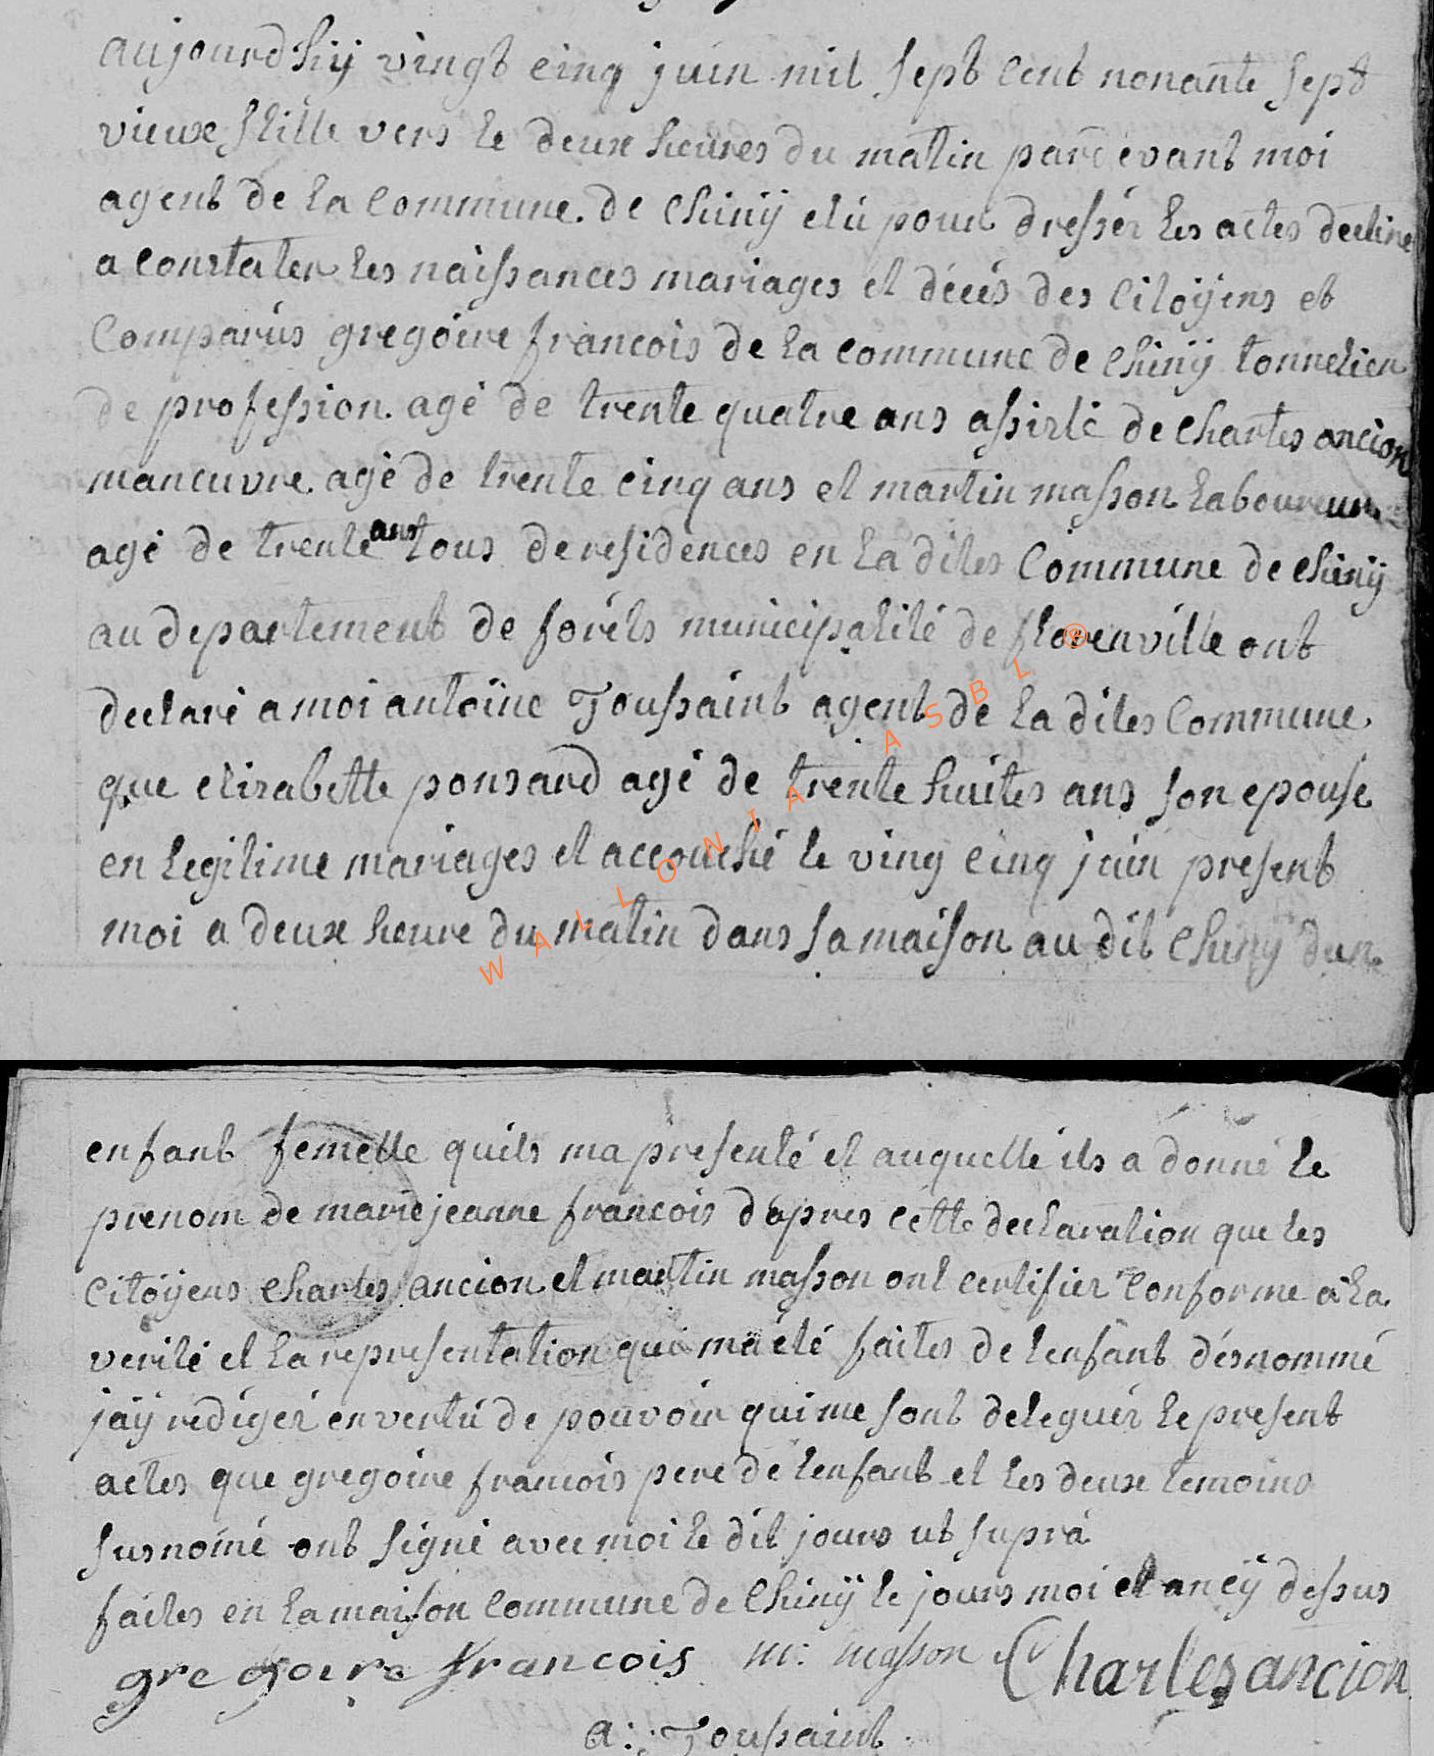 aujourdhij vingt cinq juin mil sept cent nonante sept
vieux stille vers le deux heures du matin pardevant moi
agent de la commune. de chinij elú pour dressér les actes decline
a constater les naissances mariages et décés des citoÿens et
comparús gregóire francois de la commune de chinij tonnelier
de profession. agé de trente quatre ans assisté de charles ancion
manœuvre agé de trente cinq ans et martin masson laboureur
agé de trente ans tous de residences en la dites commune de chinij
au departement de foréts municipalité de florenville ont
declaré a moi antoine Toussaint agent de la dites commune
que elizabette ponsard agé de trente huites ans son epouse
en legitime mariages et accouché le ving cinq juin present
moi a deux heure du matin dans sa maison au dit chiny dun
WALLONIA ASBL ®
enfant femelle quils ma presenté et auquelle ils a donné le
prenom de marie jeanne francois d'apres cette declaration que les
citoÿens charles ancion et martin masson ont certifier conforme a la
verité et la representation qui ma été faites de lenfant dèsnommé
jaij redigér en vertú de pouvoir qui me sont deleguér le present
actes que gregoire francois pere de lenfant et les deux temoins
susnomé ont signé avec moi le dit jours ut suprá
faites en la maison commune de chinij le jours moi et an cij dessus
gregoire francois m: masson Charles ancion
a: Toussaint